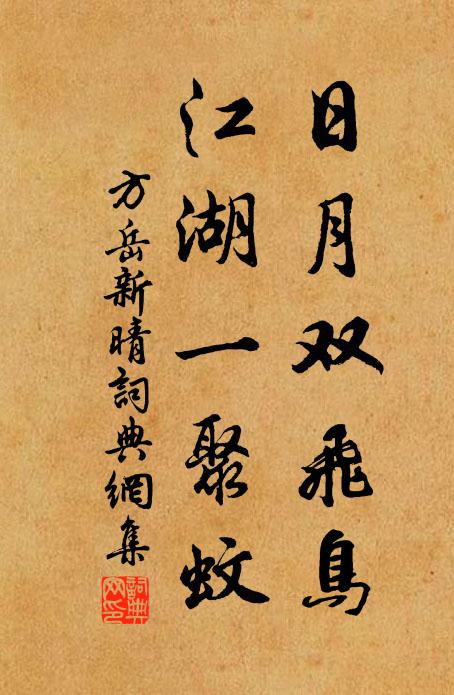 日月双飛鳥
江湖一聚蚊
方岳新晴詞典網集
詞典
网印